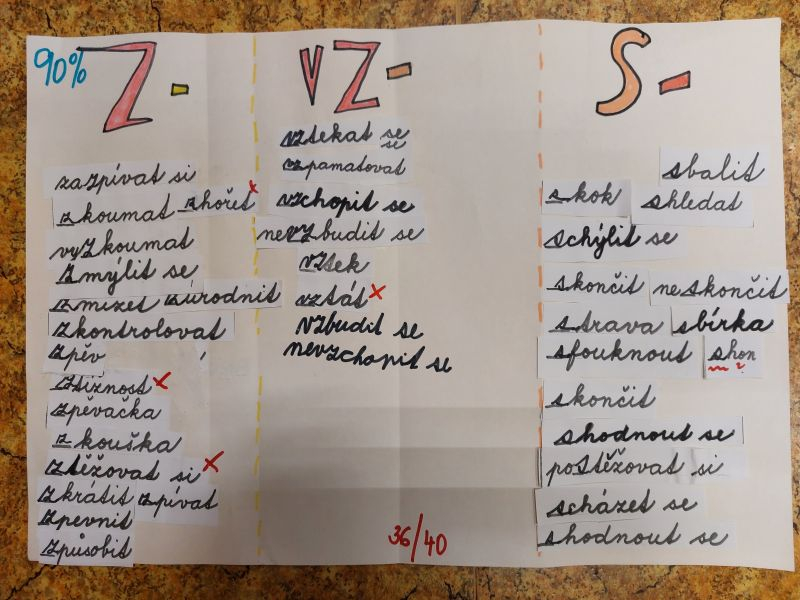 90% Z-
zazpívat si
zkoumat zhořet x
vyzkoumat
zmýlit se
zmizet zúrodnit
zkontrolovat
zpěv
ztížnost x
zpěvačka
zkouška
ztěžovat si x
zkrátit zpívat
zpevnit
způsobit
VZ-
vztekat se
se
vzpamatovat
vzchopit se
nevzbudit se
vztek
vztát x
vzbudit se
nevzchopit se
36/40
S-
sbalit
skok shledat
schýlit se
skončit neskončit
strava sbírka
sfouknout shon
?
skončit
shodnout se
postěžovat si
scházet se
shodnout se